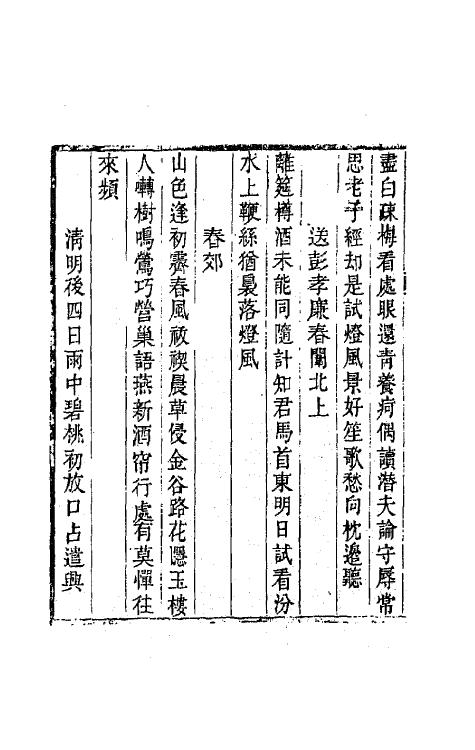 盡白疎梅看處眼還青養疴偶讀潛夫論守辱常
思老子經却是試燈風景好笙歌愁向枕邊聽
送彭孝廉春闈北上
離筵樽酒未能同隨計知君馬首東明日試看汾
水上鞭絲猶裊落燈風
春郊
山色逢初霽春風祓禊晨草侵金谷路花隱玉樓
人囀樹鳴鶯巧營巢語燕新酒帘行處有莫憚往
來頻
清明後四日雨中碧桃初放口占遣興